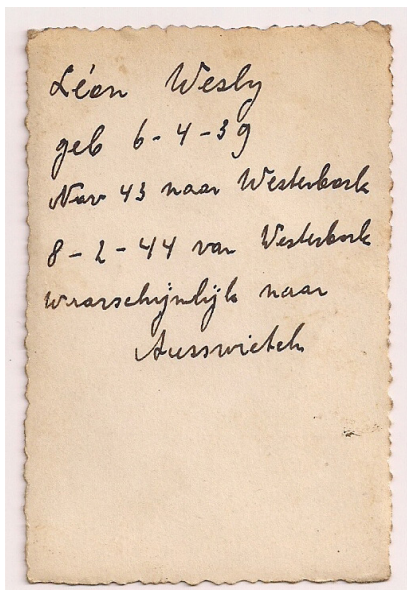 Léon Wesly
geb 6-4-39
Nov 43 naar Westerbork
8-2-44 van Westerbork
waarschijnlijk naar
Ausswietch